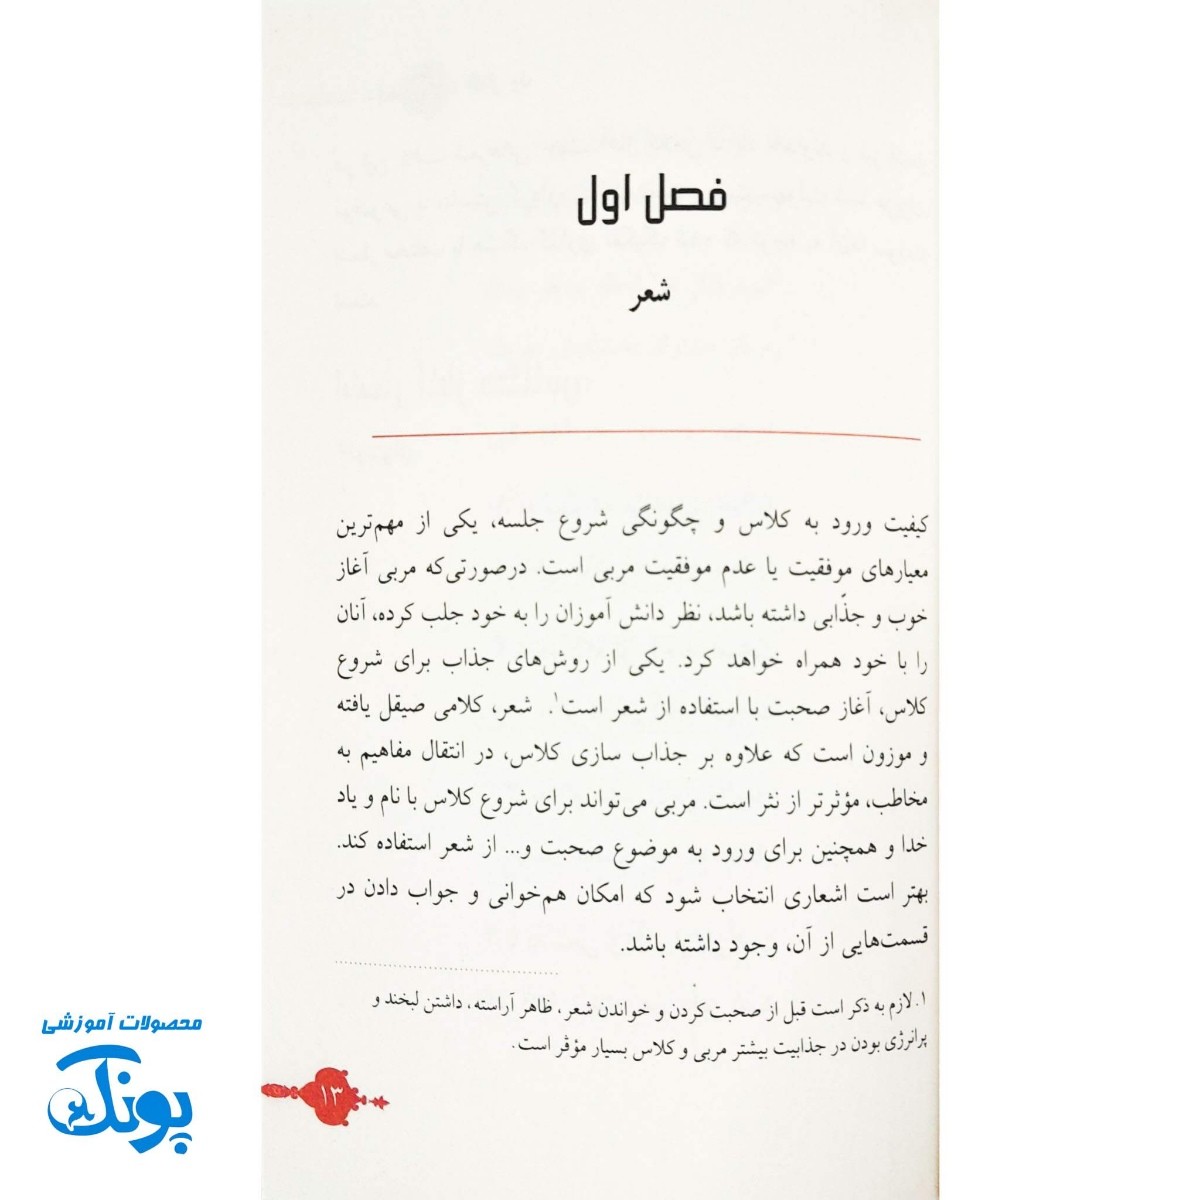 فصل اول
شعر
کیفیت ورود به کلاس و چگونگی شروع جلسه، یکی از مهم‌ترین
معیارهای موفقیت یا عدم موفقیت مربی است. درصورتی‌که مربی آغاز
خوب و جذّابی داشته باشد، نظر دانش آموزان را به خود جلب کرده، آنان
را با خود همراه خواهد کرد. یکی از روش‌های جذاب برای شروع
کلاس، آغاز صحبت با استفاده از شعر است۱. شعر، کلامی صیقل یافته
و موزون است که علاوه بر جذاب سازی کلاس، در انتقال مفاهیم به
مخاطب، مؤثرتر از نثر است. مربی می‌تواند برای شروع کلاس با نام و یاد
خدا و همچنین برای ورود به موضوع صحبت و... از شعر استفاده کند.
بهتر است اشعاری انتخاب شود که امکان هم‌خوانی و جواب دادن در
قسمت‌هایی از آن، وجود داشته باشد.
۱. لازم به ذکر است قبل از صحبت کردن و خواندن شعر، ظاهر آراسته، داشتن لبخند و
پرانرژی بودن در جذابیت بیشتر مربی و کلاس بسیار مؤثر است.
۱۳
محصولات آموزشی
پونک